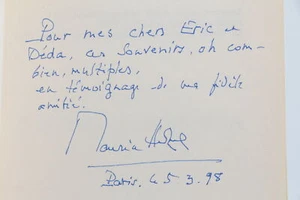 Pour mes chers Eric et
Déda, ces souvenirs, oh com-
bien, multiples,
en témoignage de ma fidèle
amitié.
Paris, le 5.3.98